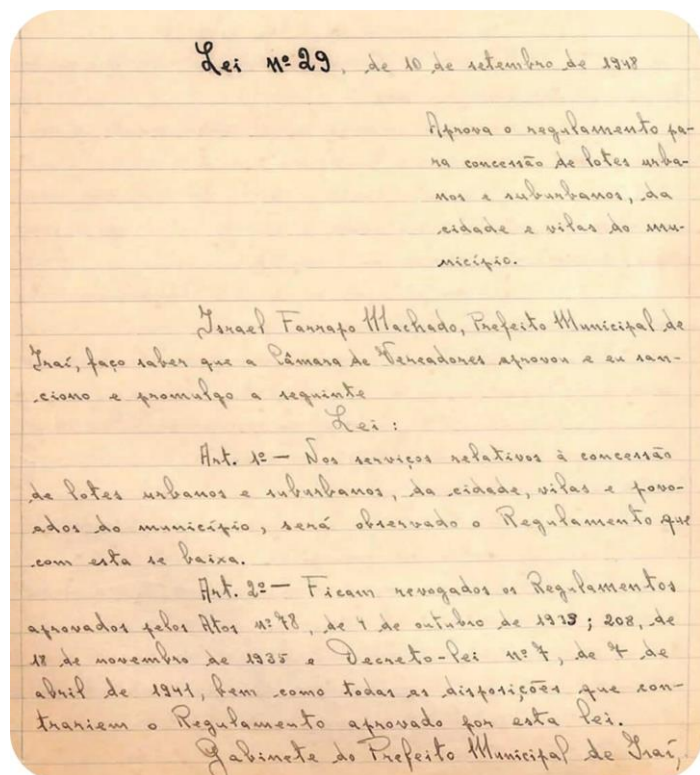 Lei nº 29, de 10 de setembro de 1948
Aprova o regulamento pa-
ra concessão de lotes urba-
nos e suburbanos, da
cidade e vilas do mu-
nicípio.
Israel Farrapo Machado, Prefeito Municipal de
Iraí, faço saber que a Câmara de Vereadores aprovou e eu san-
ciono e promulgo a seguinte
Lei:
Art. 1º — Nos serviços relativos à concessão
de lotes urbanos e suburbanos, da cidade, vilas e povo-
ados do município, será observado o Regulamento que
com esta se baixa.
Art. 2º — Ficam revogados os Regulamentos
aprovados pelos Atos nº 78, de de outubro de ; 208, de
18 de novembro de 1935 e Decreto-lei nº 7, de 7 de
abril de 1941, bem como todas as disposições que con-
trariem o Regulamento aprovado por esta lei.
Gabinete do Prefeito Municipal de Iraí,